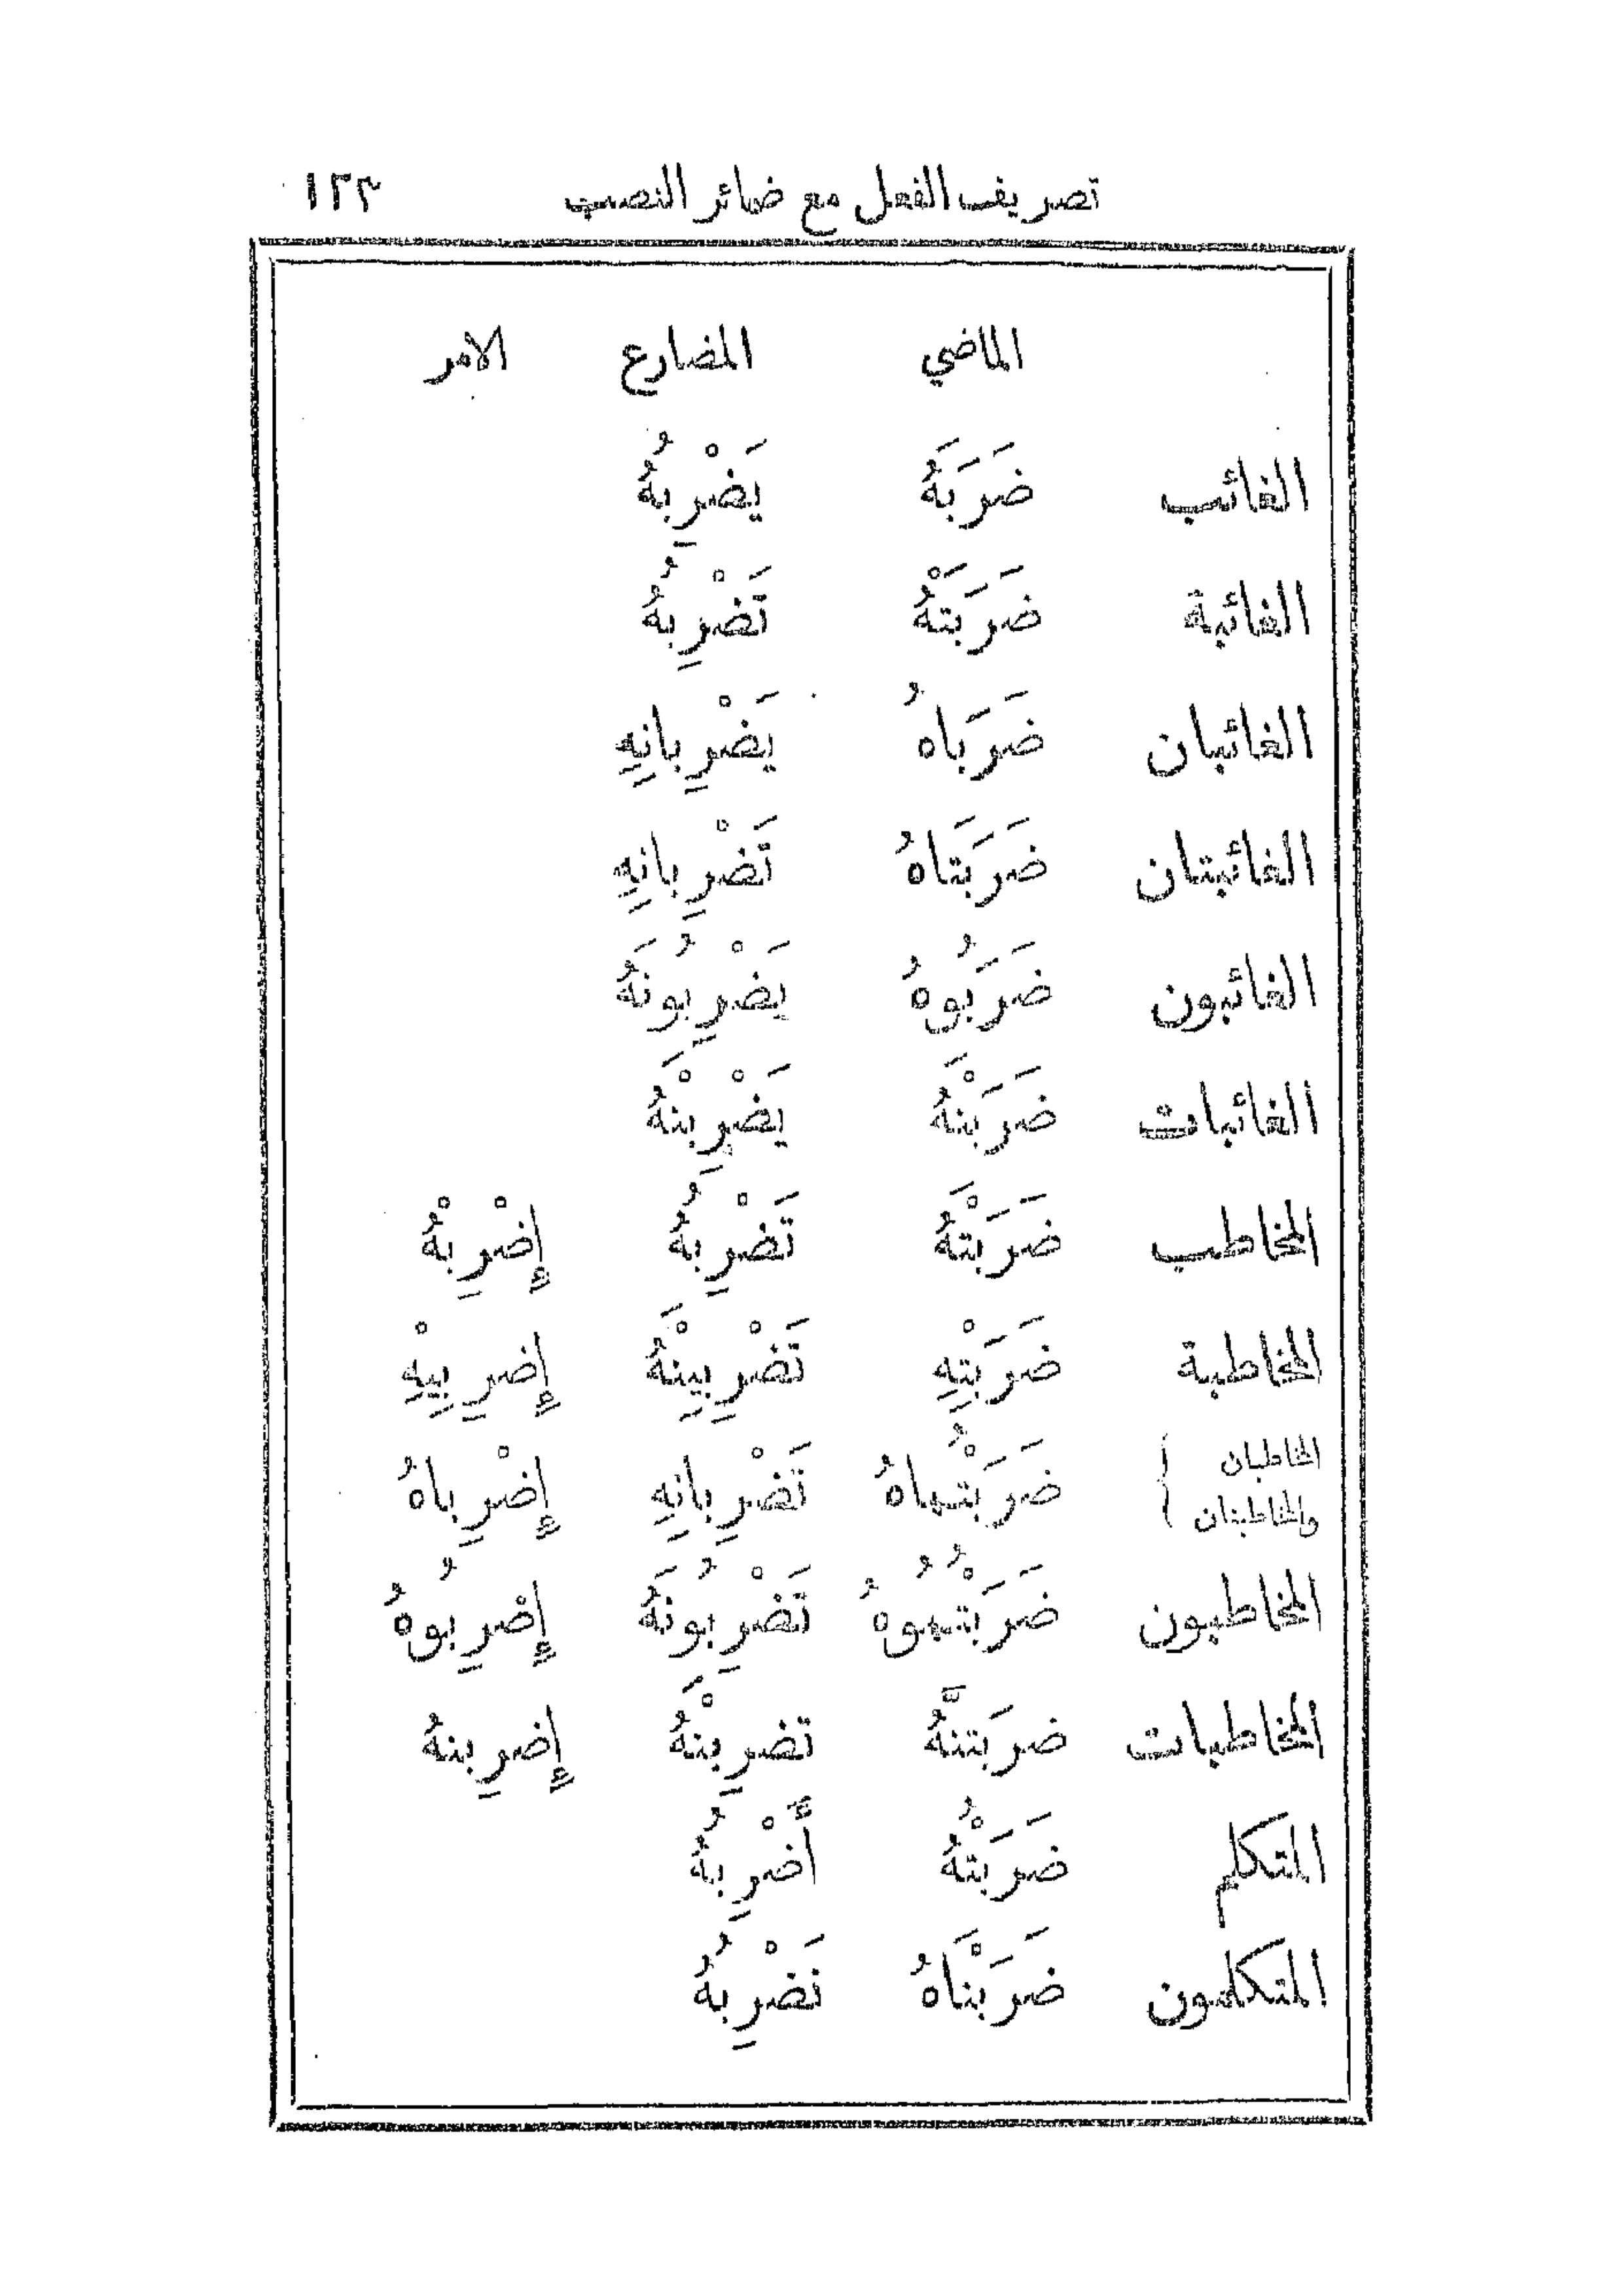 تصريف الفعل مع ضمائر النصب ١٢٣
الماضي المضارع الامر
الغائب ضَرَبَهُ يَضْرِبُهُ
الغائبة ضَرَبَتْهُ تَضْرِبُهُ
الغائبان ضَرَبَاهُ يَضْرِبانِهِ
الغائبتان ضَرَبَتَاهُ تَضْرِبانِهِ
الغائبون ضَرَبُوهُ يَضْرِبُونَهُ
الغائبات ضَرَبْنَهُ يَضْرِبْنَهُ
المخاطب ضَرَبْتَهُ تَضْرِبُهُ إِضْرِبْهُ
المخاطبة ضَرَبْتِهِ تَضْرِبِينَهُ إِضرِبِيْهِ
المخاطبان
والمخاطبتان ضَرَبْتُماهُ تَضْرِبانِهِ إِضْرِباهُ
المخاطبون ضَرَبْتُمُوهُ تَضْرِبُونَهُ إِضْرِبُوهُ
المخاطبات ضرَبتنَّهُ تضرِبْنَهُ إِضرِبنهُ
المتكلم ضَرَبْتُهُ أَضْرِبُهُ
المتكلمون ضَرَبْنَاهُ نَضْرِبُهُ